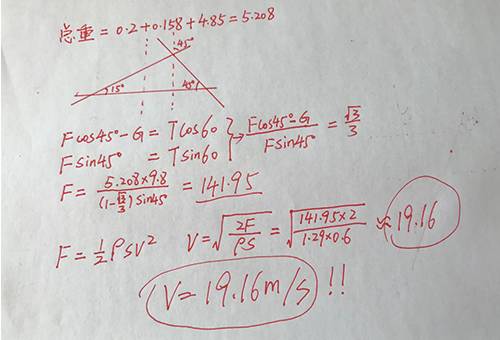 总重 = 0.2+0.158+4.85=5.208
45°
15°
45°
Fcos45°-G = Tcos60
Fsin45° = Tsin60
Fcos45°-G / Fsin45° = √3/3
F = 5.208×9.8 / (1-√3/3)sin45° = 141.95
F = 1/2 ρSV² V = √(2F/ρS) = √(141.95×2 / 1.29×0.6) ≈ 19.16
V = 19.16m/s !!